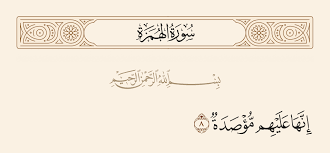 سُورَةُ الهُمَزَةِ
بِسْمِ اللَّهِ الرَّحْمَٰنِ الرَّحِيمِ
إِنَّهَا عَلَيْهِم مُّؤْصَدَةٌ ٨